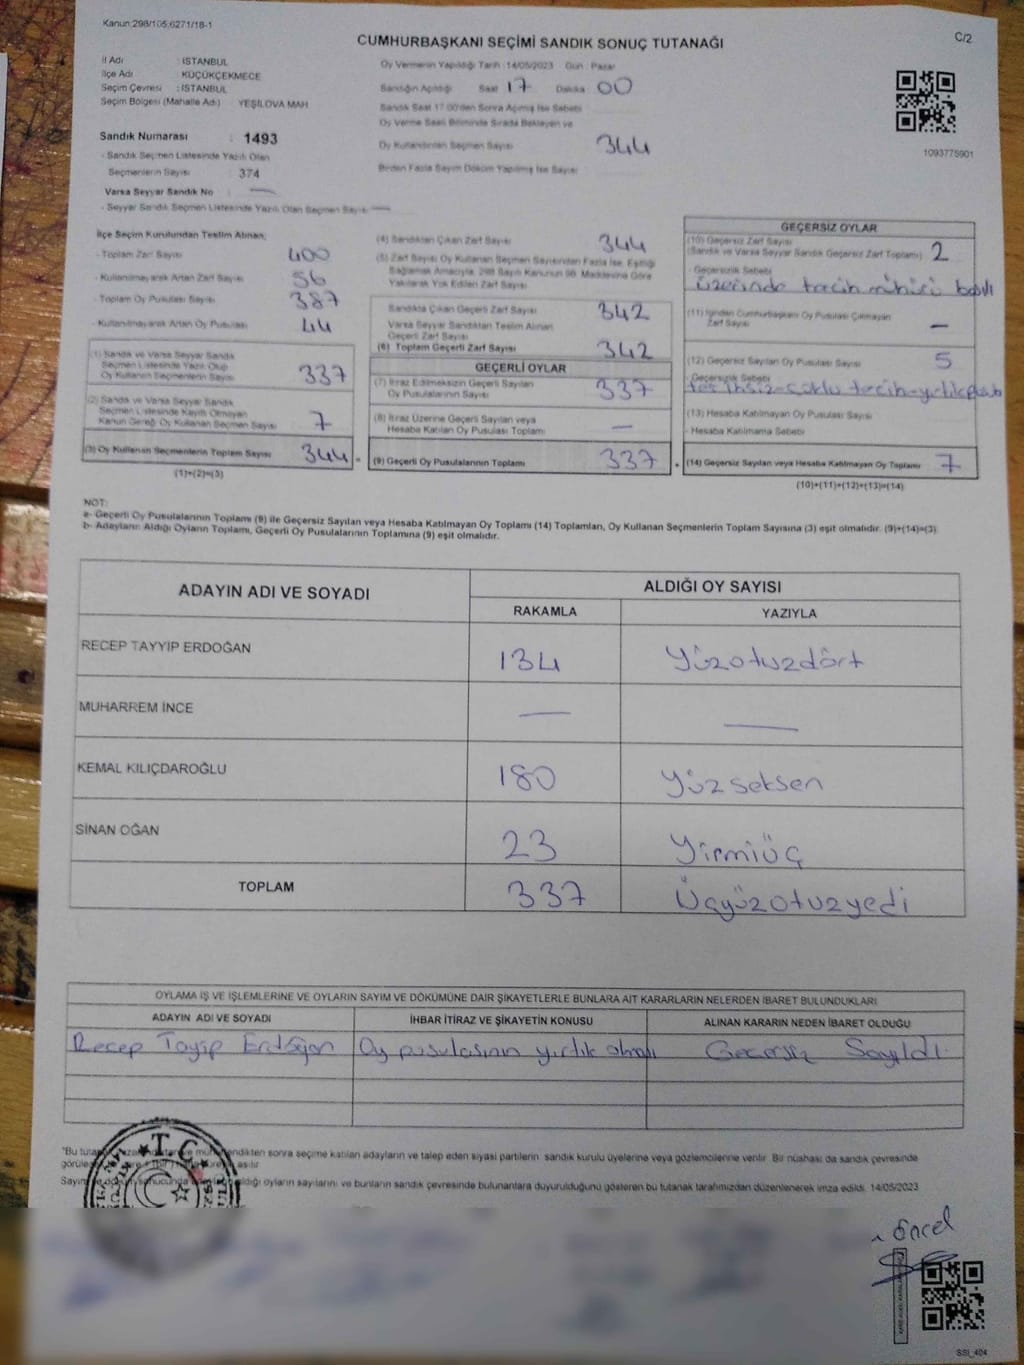 Kanun:298/105;6271/18-1
C/2
CUMHURBAŞKANI SEÇİMİ SANDIK SONUÇ TUTANAĞI
İl Adı : İSTANBUL
İlçe Adı : KÜÇÜKÇEKMECE
Seçim Çevresi : İSTANBUL
Seçim Bölgesi (Mahalle Adı) : YEŞİLOVA MAH
Sandık Numarası : 1493
- Sandık Seçmen Listesinde Yazılı Olan
Seçmenlerin Sayısı : 374
Varsa Seyyar Sandık No : —
- Seyyar Sandık Seçmen Listesinde Yazılı Olan Seçmen Sayısı : —
Oy Vermenin Yapıldığı Tarih : 14/05/2023 Gün : Pazar
Sandığın Açıldığı Saat 17 Dakika 00
Sandık Saat 17.00'den Sonra Açılmış İse Sebebi
Oy Verme Saati Bitiminde Sırada Bekleyen ve
Oy Kullandırılan Seçmen Sayısı 344
Birden Fazla Sayım Döküm Yapılmış İse Sayısı
1093775901
İlçe Seçim Kurulundan Teslim Alınan:
- Toplam Zarf Sayısı 400
- Kullanılmayarak Artan Zarf Sayısı 56
- Toplam Oy Pusulası Sayısı 387
- Kullanılmayarak Artan Oy Pusulası 44
(1) Sandık ve Varsa Seyyar Sandık
Seçmen Listesinde Yazılı Olup
Oy Kullanan Seçmenlerin Sayısı 337
(2) Sandık ve Varsa Seyyar Sandık
Seçmen Listesinde Kayıtlı Olmayan
Kanun Gereği Oy Kullanan Seçmen Sayısı 7
(3) Oy Kullanan Seçmenlerin Toplam Sayısı 344
(1)+(2)=(3)
(4) Sandıktan Çıkan Zarf Sayısı 344
(5) Zarf Sayısı Oy Kullanan Seçmen Sayısından Fazla İse, Eşitliği
Sağlamak Amacıyla, 298 Sayılı Kanunun 98. Maddesine Göre
Yakılarak Yok Edilen Zarf Sayısı
Sandıkta Çıkan Geçerli Zarf Sayısı 342
Varsa Seyyar Sandıktan Teslim Alınan
Geçerli Zarf Sayısı
(6) Toplam Geçerli Zarf Sayısı 342
GEÇERLİ OYLAR
(7) İtiraz Edilmeksizin Geçerli Sayılan
Oy Pusulalarının Sayısı 337
(8) İtiraz Üzerine Geçerli Sayılan veya
Hesaba Katılan Oy Pusulası Toplamı —
(9) Geçerli Oy Pusulalarının Toplamı 337
GEÇERSİZ OYLAR
(10) Geçersiz Zarf Sayısı
(Sandık ve Varsa Seyyar Sandık Geçersiz Zarf Toplamı) 2
- Geçersizlik Sebebi
üzerinde tercih mührü basılı
(11) İçinden Cumhurbaşkanı Oy Pusulası Çıkmayan
Zarf Sayısı —
(12) Geçersiz Sayılan Oy Pusulası Sayısı 5
- Geçersizlik Sebebi
tercihsiz-çoklu tercih-yırtık
(13) Hesaba Katılmayan Oy Pusulası Sayısı
- Hesaba Katılmama Sebebi
(14) Geçersiz Sayılan veya Hesaba Katılmayan Oy Toplamı 7
(10)+(11)+(12)+(13)=(14)
NOT:
a- Geçerli Oy Pusulalarının Toplamı (9) ile Geçersiz Sayılan veya Hesaba Katılmayan Oy Toplamı (14) Toplamları, Oy Kullanan Seçmenlerin Toplam Sayısına (3) eşit olmalıdır. (9)+(14)=(3).
b- Adayların Aldığı Oyların Toplamı, Geçerli Oy Pusulalarının Toplamına (9) eşit olmalıdır.
ADAYIN ADI VE SOYADI
ALDIĞI OY SAYISI
RAKAMLA YAZIYLA
RECEP TAYYİP ERDOĞAN 134 Yüzotuzdört
MUHARREM İNCE — —
KEMAL KILIÇDAROĞLU 180 Yüzseksen
SİNAN OĞAN 23 Yirmiüç
TOPLAM 337 Üçyüzotuzyedi
OYLAMA İŞ VE İŞLEMLERİNE VE OYLARIN SAYIM VE DÖKÜMÜNE DAİR ŞİKAYETLERLE BUNLARA AİT KARARLARIN NELERDEN İBARET BULUNDUKLARI
ADAYIN ADI VE SOYADI İHBAR İTİRAZ VE ŞİKAYETİN KONUSU ALINAN KARARIN NEDEN İBARET OLDUĞU
Recep Tayip Erdoğan Oy pusulasının yırtık olması Geçersiz Sayıldı.
"Bu tuta sonra seçime katılan adayların ve talep eden siyasi partilerin sandık kurulu üyelerine veya gözlemcilerine verilir. Bir nüshası da sandık çevresinde
görüle asılır.
Sayım sonucunda aldığı oyların sayılarını ve bunların sandık çevresinde bulunanlara duyurulduğunu gösteren bu tutanak tarafımızdan düzenlenerek imza edildi. 14/05/2023
T.C.
Öncel
SSI_404